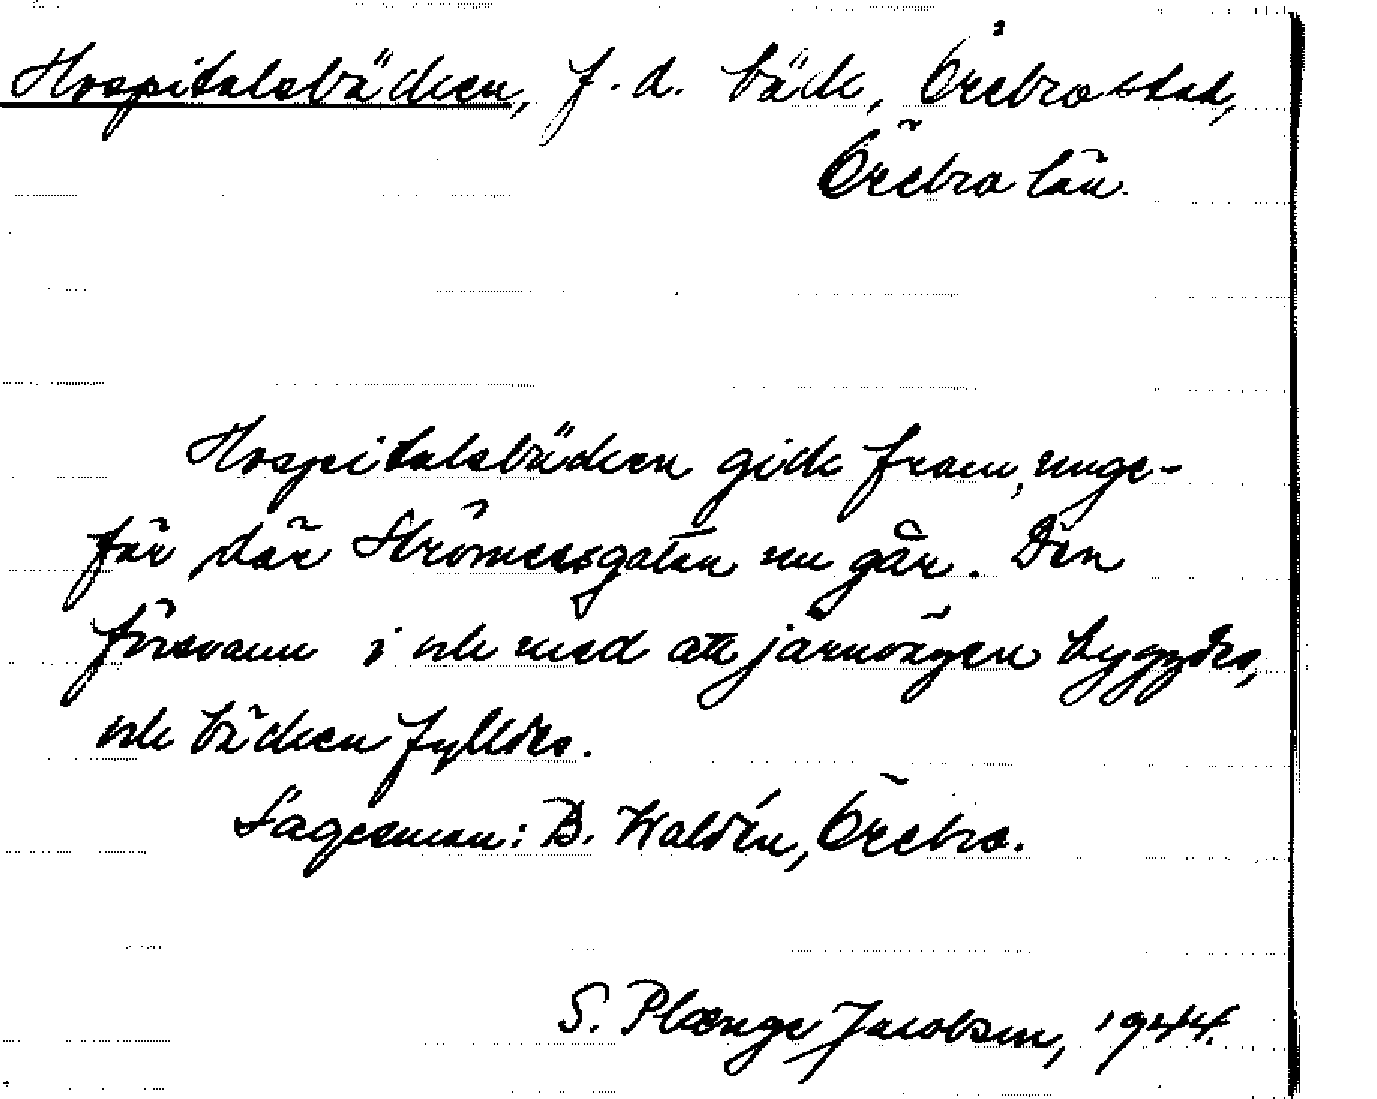 Hospitalsbäcken, f.d. bäck, Örebro stad,
Örebro län.
Hospitalsbäcken gick fram, unge-
fär där Strömersgatan nu går. Den
försvann i och med att järnvägen byggdes,
och bäcken fylldes.
Sagesman: B. Waldén, Örebro.
S. Plænge Jacobsen, 1944.